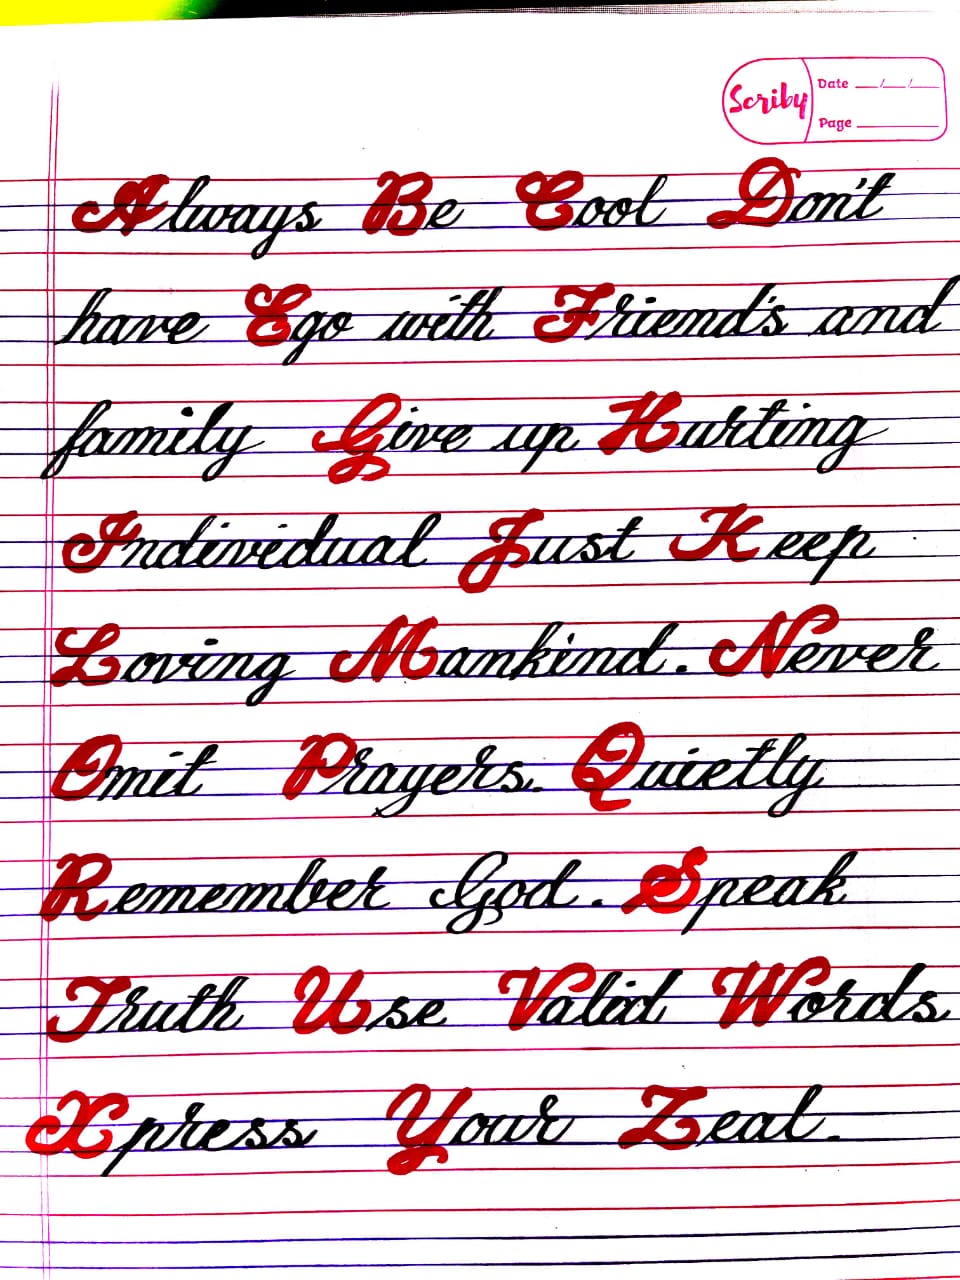 Scriby
Date __/__/__
Page ________
Always Be Cool Don't
have Ego with Friend's and
family Give up Hurting
Individual Just Keep
Loving Mankind. Never
Omit Prayers. Quietly
Remember God. Speak
Truth Use Valid Words
Xpress Your Zeal.